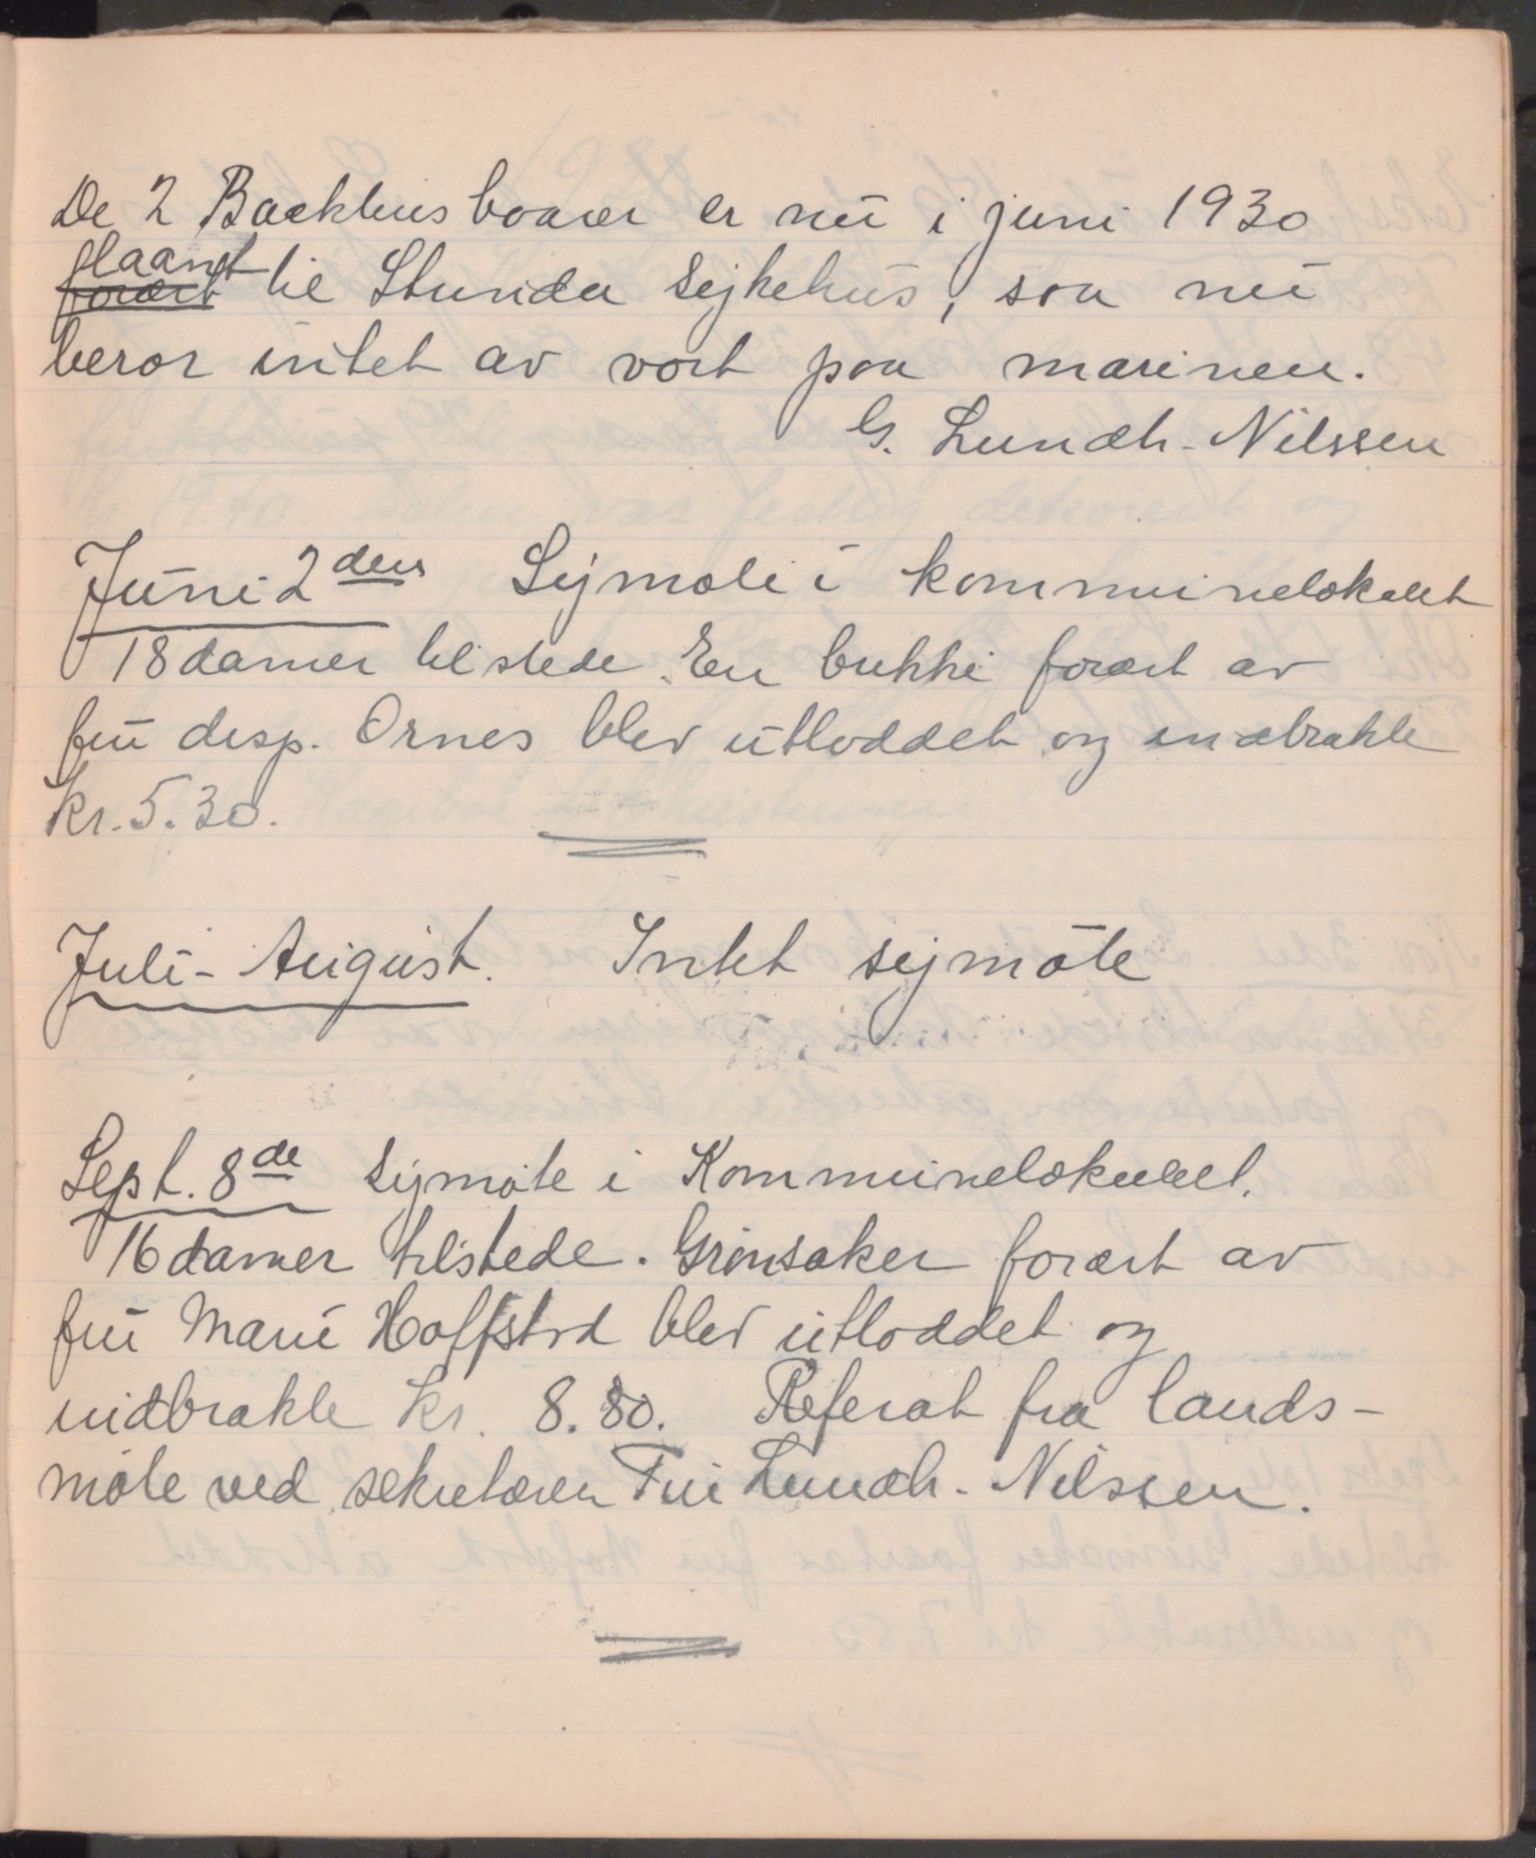 De 2 Backhusboarer er nu i juni 1930
utlaant
foræret til Stunda Sykehus, saa nu
beror intet av vort paa marinen.
G. Lundh-Nilssen
Juni 2den Symöte i kommunelokalet
18 damer tilstede. En bukke foræret av
fru disp. Ornes blev utloddet og indbrakte
kr. 5.30.
Juli - August. Intet symöte
Sept. 8de Symöte i Kommunelokalet.
16 damer tilstede. Grönsaker foræret av
fru Marie Hoffstad blev utloddet og
indbrakte kr. 8.80. Referat fra lands-
möte ved sekretæren Fru Lundh-Nilssen.